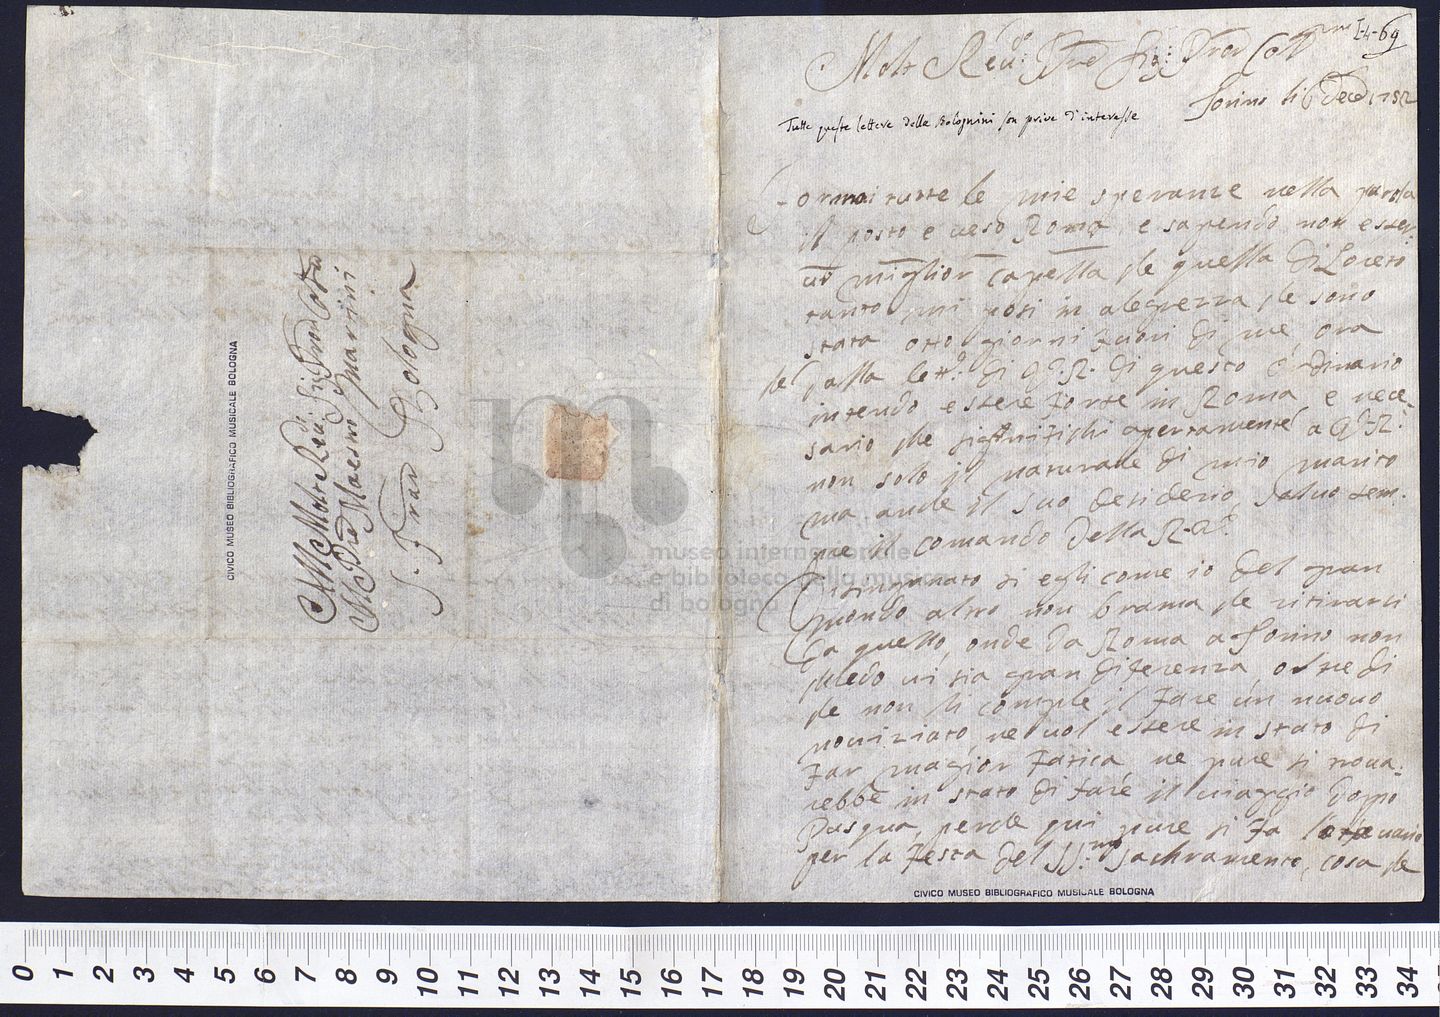 I-4-69
Molto Revd: Pre Sig: Pron Col
Torino li 6 Dece 1752
Tutte queste lettere della Bolognini son prive d'interesse
ormai tutte le mie speranze nella parola
il posto e verso Roma, e sapendo non esser
miglior capella che quella di Loreto
tanto mi posi in alegrezza che sono
stata otto giorni fuori di me, ora
che dalla lettª di V.R. di questo ordinario
intendo essere forte in Roma e nece-
sario che significhi apertamente a V.R.
non solo il naturale di mio marito
ma anche il suo desiderio, salvo sem-
pre il comando della R.
Disinganato si egli come io del gran
mondo altro non brama che ritirarsi
da quello, onde da Roma a Torino non
credo vi sia gran diferenza, oltre di
che non li compie il fare un nuovo
noviziato, ne vol essere in stato di
far magior fatica ne pure si trova-
rebbe in stato di fare il viaggio doppo
Pasqua, perche qui pure si fa
per la festa del SS.mo Sachramento, cosa che
CIVICO MUSEO BIBLIOGRAFICO MUSICALE BOLOGNA
Al Molto Revd: Sig: Pron
Il Pre Maestro Martini
S. Fran Bologna
CIVICO MUSEO BIBLIOGRAFICO MUSICALE BOLOGNA
museo internazionale
e biblioteca della musica
di bologna
0 1 2 3 4 5 6 7 8 9 10 11 12 13 14 15 16 17 18 19 20 21 22 23 24 25 26 27 28 29 30 31 32 33 34